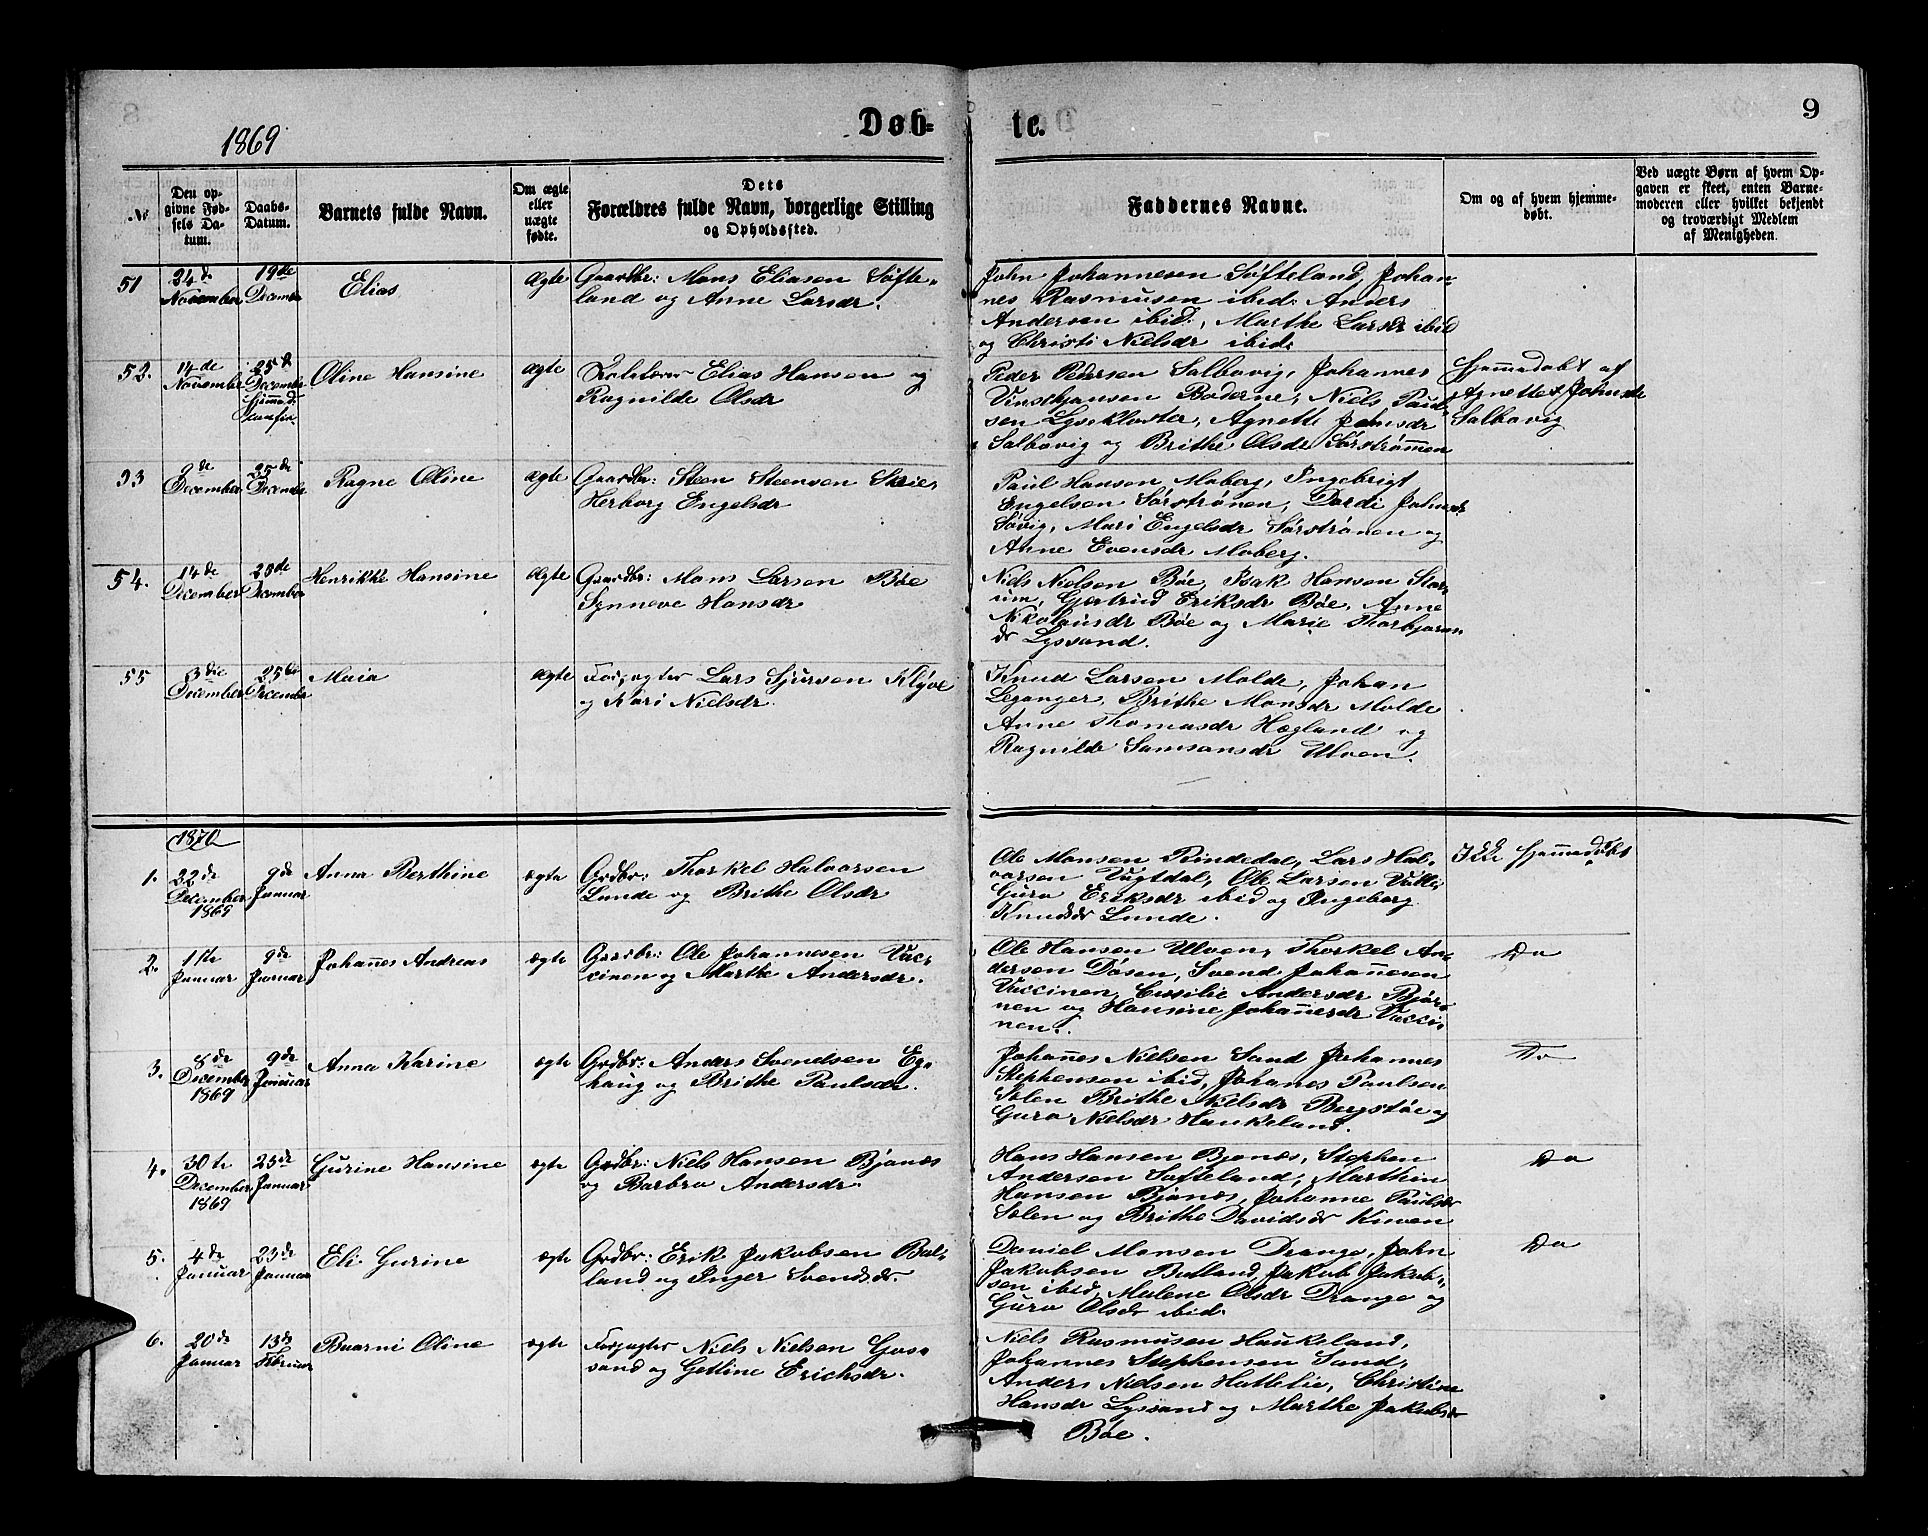 1869
Døb=
te.
9
№
Den op-
givne Fød-
sels Da-
tum.
Daabs-
Datum.
Barnets fulde Navn.
Om ægte
eller
uægte
fødte.
Dets
Forældres fulde Navn, borgerlige Stilling
og Opholdssted.
Faddernes Navne.
Om og af hvem hjemme-
døbt.
Ved uægte Børn af hvem Op-
gaven er skeet, enten Barne-
moderen eller hvilket bekjendt
og troværdigt Medlem
af Menigheden.
51
24de
November
19de
December
Elias
Ægte
Gaardbr: Mons Eliasen Søfte-
land og Anne Larsdr.
John Johannesen Søfteland, Johan-
nes Rasmusen ibid: Anders
Andersen ibid:, Marthe Larsdr ibid
og Christi Nielsdr ibid.
52.
14de
November
25d
December
Oline Hansine
ægte
Elias Hansen og
Ragnilde Olsdr
Peder Pedersen Salbovig, Johannes
Boderne, Niels Paul-
sen Lysekloster, Agnette Johnsdr
Salbovig og Brithe Olsdr Sørstrømmen
Hjemmedøbt af
Agnette Johnsdr
Salbovig
53
2de
December
25de
December
Ragne Oline
ægte
Gaardbr: Steen Steensen Skeie,
Herborg Engelsdr
Paul Hansen Moberg, Ingebrigt
Engelsen Sørstrønen, Dordi Johnsdr
Søvig, Mari Engelsdr Sørstrønen og
Anne Evensdr Moberg.
54.
14de
December
26de
December
Henrikke Hansine
Ægte
Gaardbr: Mons Larsen Bøe
Synneve Hansdr
Niels Nielsen Bøe, Isak Hansen Stor-
um, Gjertrud Eriksdr Bøe, Anne
Nikolaisdr Bøe og Marie Thorbjørns
dr Lyssand.
55
3die
December
25de
December
Maia
Ægte
Forpagter Lars Sjursen Kløve
og Kari Nielsdr.
Knud Larsen Molde, Johan
Leganger, Brithe Monsdr Molde
Anne Thomasdr Hægland og
Ragnilde Samsonsdr Ulven.
1870
1.
22de
December
1869
9de
Januar
Anna Berthine
ægte
Grdbr: Thorkel Halvorsen
Lunde og Brithe Olsdr
Ole Monsen Rindedal, Lars Hal-
vorsen Vugtdal, Ole Larsen Valle
Guro Eriksdr ibid og Ingeborg
Knudsdr Lunde.
Ikke hjemmedøbt
2.
1ste
Januar
9de
Januar
Johañes Andreas
ægte
Grdbr: Ole Johannesen Vac-
cinen og Marthe Andersdr.
Ole Hansen Ulven, Thorkel An-
dersen Døsen, Svend Johañesen
Vaccinen, Cissilie Andersdr Bjør-
nen og Hansine Johañesdr Vacci-
nen.
Do
3.
8de
December
1869
9de
Januar
Anna Karine
ægte
Grdbr: Anders Svendsen Eg-
haug og Brithe Paulsdr.
Johañes Nielsen Sand Johannes
Stephensen ibid, Johanes Paulsen
Solen Brithe Nielsdr Bergstøe og
Guro Nielsdr Haukeland.
Do
4.
30te
December
1869
23de
Januar
Gurine Hansine
ægte
Grdbr: Niels Hansen Bjånæs
og Barbro Andersdr.
Hans Hansen Bjonæs, Stephen
Andersen Søfteland, Marthin
Hansen Bjånæs, Johanne Paulsdr
Solen og Brithe Davidsdr Kuven
Do
5.
4de
Januar
23de
Januar
Eli Gurine
ægte
Grdbr: Erik Jakobsen Bal-
land og Inger Svendsdr.
Daniel Monsen Drange, John
Jakobsen Balland, Jakob Jakob-
sen ibid, Malene Olsdr Drange og
Guro Olsdr ibid.
Do
6.
20de
Januar
13de
Februar
Buarni Oline
ægte
Forpagter Niels Nielsen Gaas-
sand og Getline Erichsdr.
Niels Rasmusen Haukeland,
Johannes Stephensen Sand,
Anders Nielsen Hattelie, Christine
Hansdr Lyssand og Marthe Jakobsdr
Bøe.